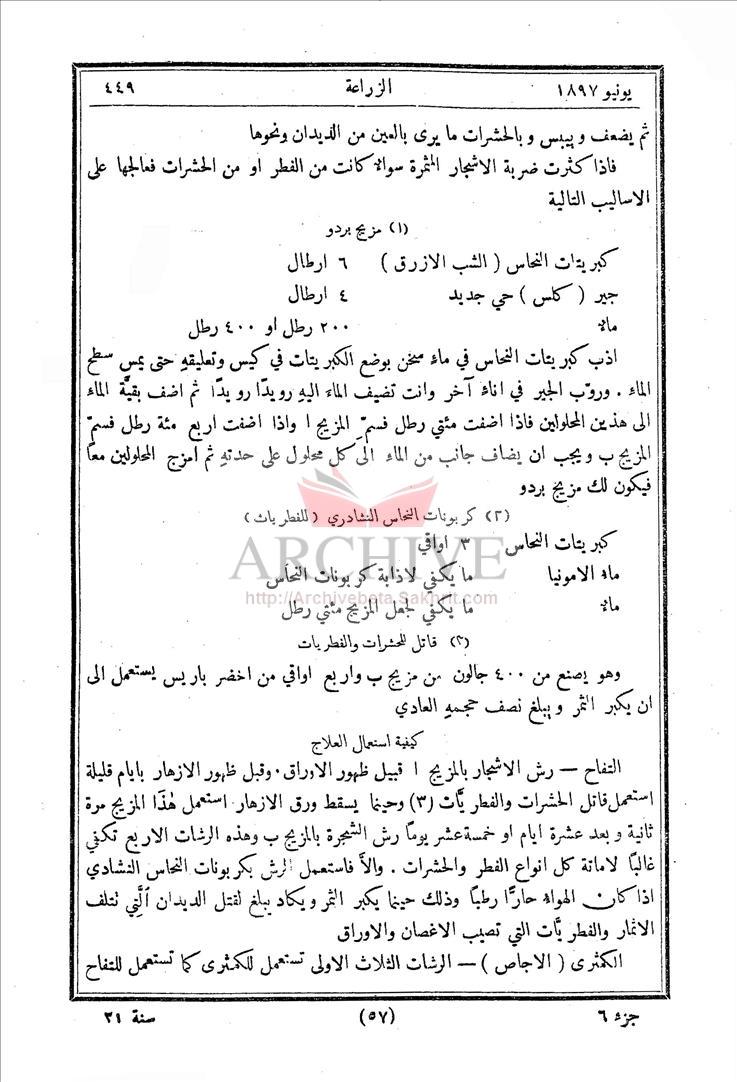 يونيو ١٨٩٧ الزراعة ٤٤٩
ثم يضعف وييبس وبالحشرات ما يرى بالعين من الديدان ونحوها
فاذا كثرت ضربة الاشجار المثمرة سوالا كانت من الفطر او من الحشرات فعالجها على
الاساليب التالية
(١) مزيج بردو
كبريتات النحاس ( الشب الازرق ) ٦ ارطال
جير ( كلس ) حي جديد ٤ ارطال
مالا ٢٠٠ رطل او ٤٠٠ رطل
اذب كبريتات النحاس في ماء سخن بوضع الكبريتات في كيس وتعليقه حتى يمس سطح
الماء . وروّب الجير في اناء آخر وانت تضيف الماء اليه رويدًا رويدًا ثم اضف بقيَّة الماء
الى هذين المحلولين فاذا اضفت مئتي رطل فسمِّ المزيج ا واذا اضفت اربع مئة رطل فسمِّ
المزيج ب ويجب ان يضاف جانب من الماء الى كل محلول على حدته ثم امزج المحلولين معًا
فيكون لك مزيج بردو
(٢) كربونات النحاس النشادري ( للفطريات )
كبريتات النحاس ٣ اواقي
ماء الامونيا ما يكفي لاذابة كربونات النحاس
مالا ما يكفي لجعل المزيج مئتي رطل
(٣) قاتل للحشرات والفطريات
وهو يصنع من ٤٠٠ جالون من مزيج ب واربع اواقي من اخضر باريس يستعمل الى
ان يكبر الثمر ويبلغ نصف حجمه العادي
كيفية استعمال العلاج
التفاح — رش الاشجار بالمزيج ا قبيل ظهور الاوراق . وقبل ظهور الازهار بايام قليلة
استعمل قاتل الحشرات والفطريَّات (٣) وحينما يسقط ورق الازهار استعمل هٰذَا المزيج مرة
ثانية وبعد عشرة ايام او خمسة عشر يومًا رش الشجرة بالمزيج ب وهذه الرشات الاربع تكفي
غالبًا لاماتة كل انواع الفطر والحشرات . والاَّ فاستعمل الرش بكربونات النحاس النشادي
اذا كان الهواء حارًّا رطبًا وذلك حينما يكبر الثمر ويكاد يبلغ لقتل الديدان الَّتِي تتلف
الاثمار والفطريَّات التي تصيب الاغصان والاوراق
الكمثرى ( الاجاص ) — الرشات الثلاث الاولى تستعمل للكمثرى كما تستعمل للتفاح
جزء ٦ (٥٧) سنة ٢١
ARCHIVE
http://Archivebeta.Sakhrit.com